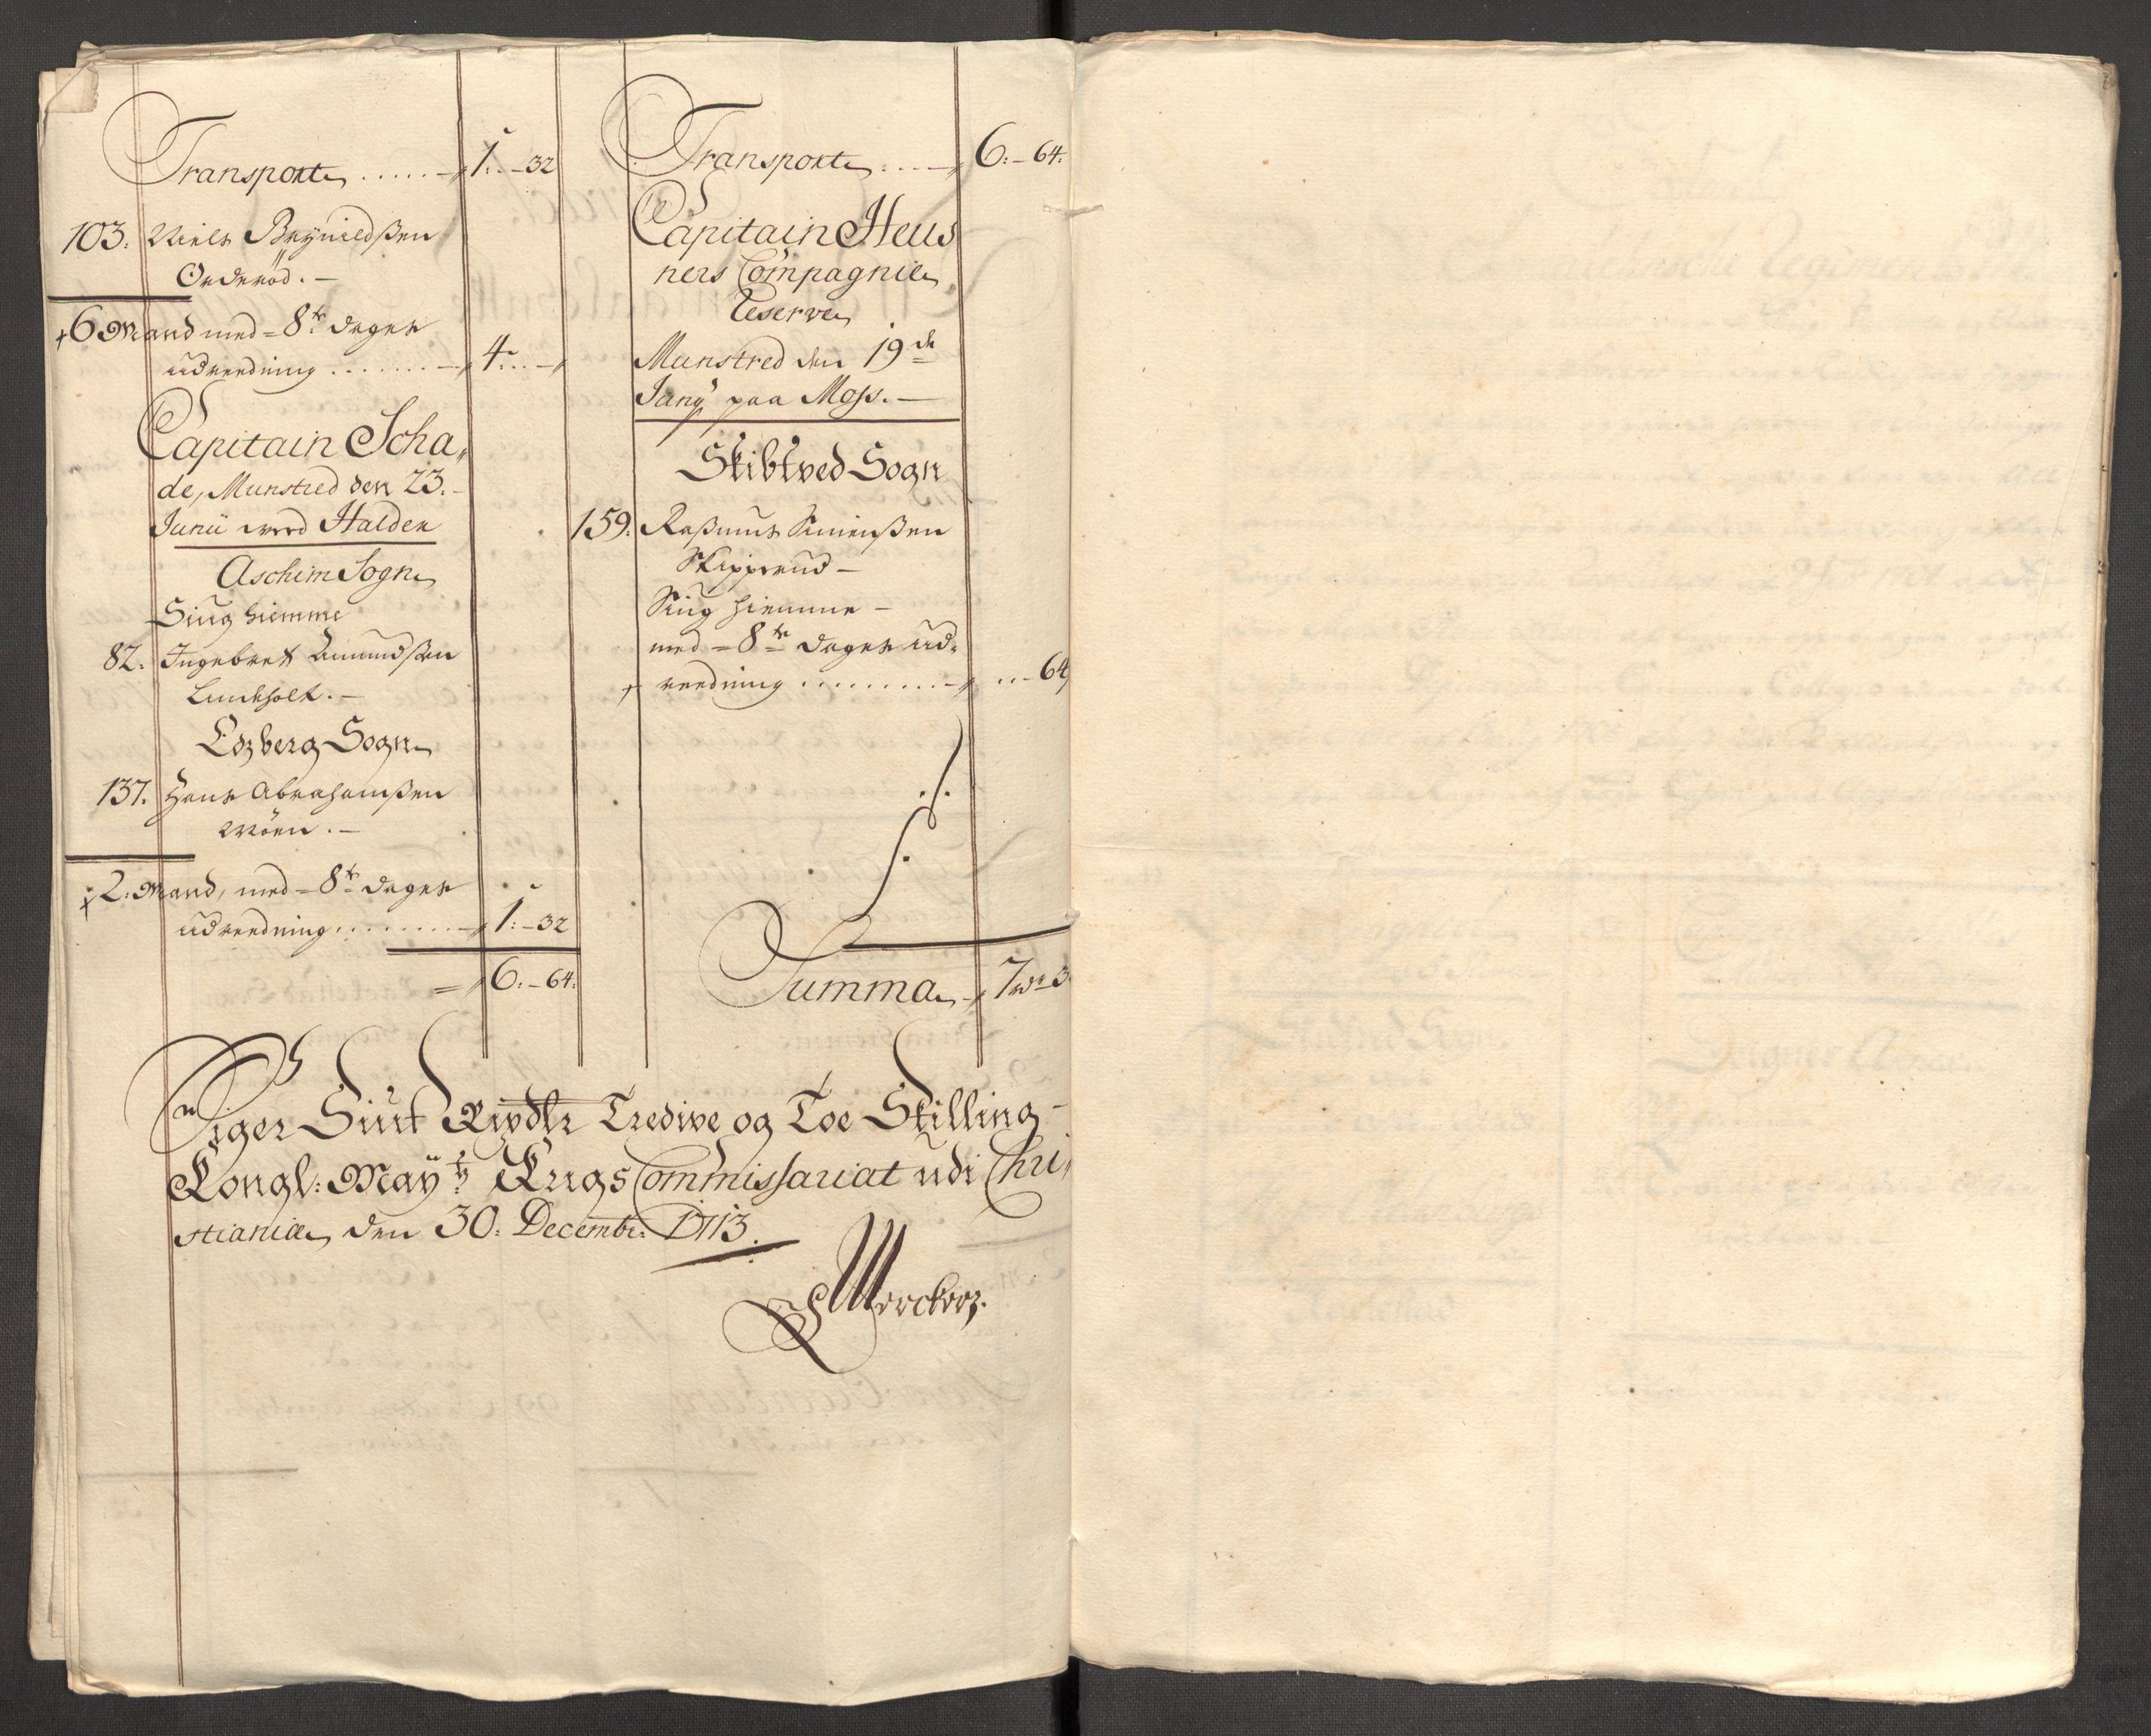 Transporte ..... 1: - 32
103. Niels Brÿnildßen
Orderöd. -
6 Mand med = 8te dages
udreedning ....... 4: -
Capitain Scha,
de, Munstred den 23.
Junii ved Halden
Aschim Sogn
Siug hiemme
82. Ingebret Amundßen
Lundholt. -
Edzberg Sogn
137. Hans Abrahamßen
Moen. -
2: Mand, med = 8te dages
udreedning ........ 1: - 32
= 6: - 64:
Transporte .... 6: - 64:
Capitain Heus
ners Compagnie
Reserve
Munstred den 19de
Junÿ paa Moss. -
Skibtved Sogn
159. Raßmus Simenßen
Skipperud -
Siug hiemme -
med = 8te dages ud,
reedning ......... - 64
Summa 7 rdr 3
Siger Siuf Rixdlr Tredive og Toe Skilling
Kongl: Maÿts Krigs Commissariat udi Chri,
stiania den 30. Decembr: 1713.